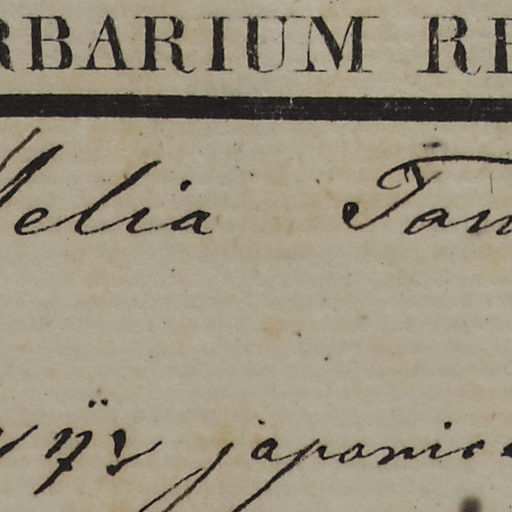 RBARIUM RE
Melia Tom
japonica